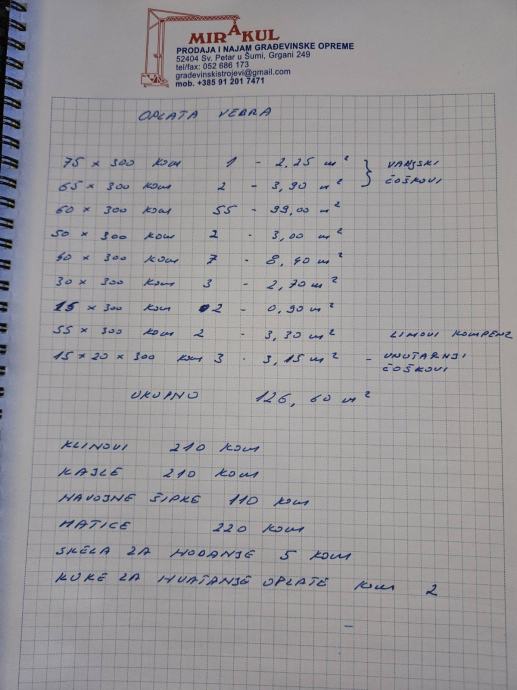 MIRAKUL
PRODAJA I NAJAM GRAĐEVINSKE OPREME
52404 Sv. Petar u Šumi, Grgani 249
tel/fax: 052 686 173
gradevinskistrojevi@gmail.com
mob. +385 91 201 7471
OPLATA VEBRA
75 x 300 KOM 1 - 2,25 m² } VANJSKI
65 x 300 KOM 2 - 3,90 m² ĆOŠKOVI
60 x 300 KOM 55 - 99,00 m²
50 x 300 KOM 2 - 3,00 m²
40 x 300 KOM 7 - 8,40 m²
30 x 300 KOM 3 - 2,70 m²
15 x 300 KOM 2 - 0,90 m²
55 x 300 KOM 2 - 3,30 m² LIMOVI KOMPENZ
15 x 20 x 300 KOM 3 - 3,15 m² - UNUTARNJI
ĆOŠKOVI
UKUPNO 126,60 m²
KLINOVI 210 KOM
KAJLE 210 KOM
NAVOJNE ŠIPKE 110 KOM
MATICE 220 KOM
SKELA ZA HODANJE 5 KOM
KUKE ZA HVATANJE OPLATE KOM 2